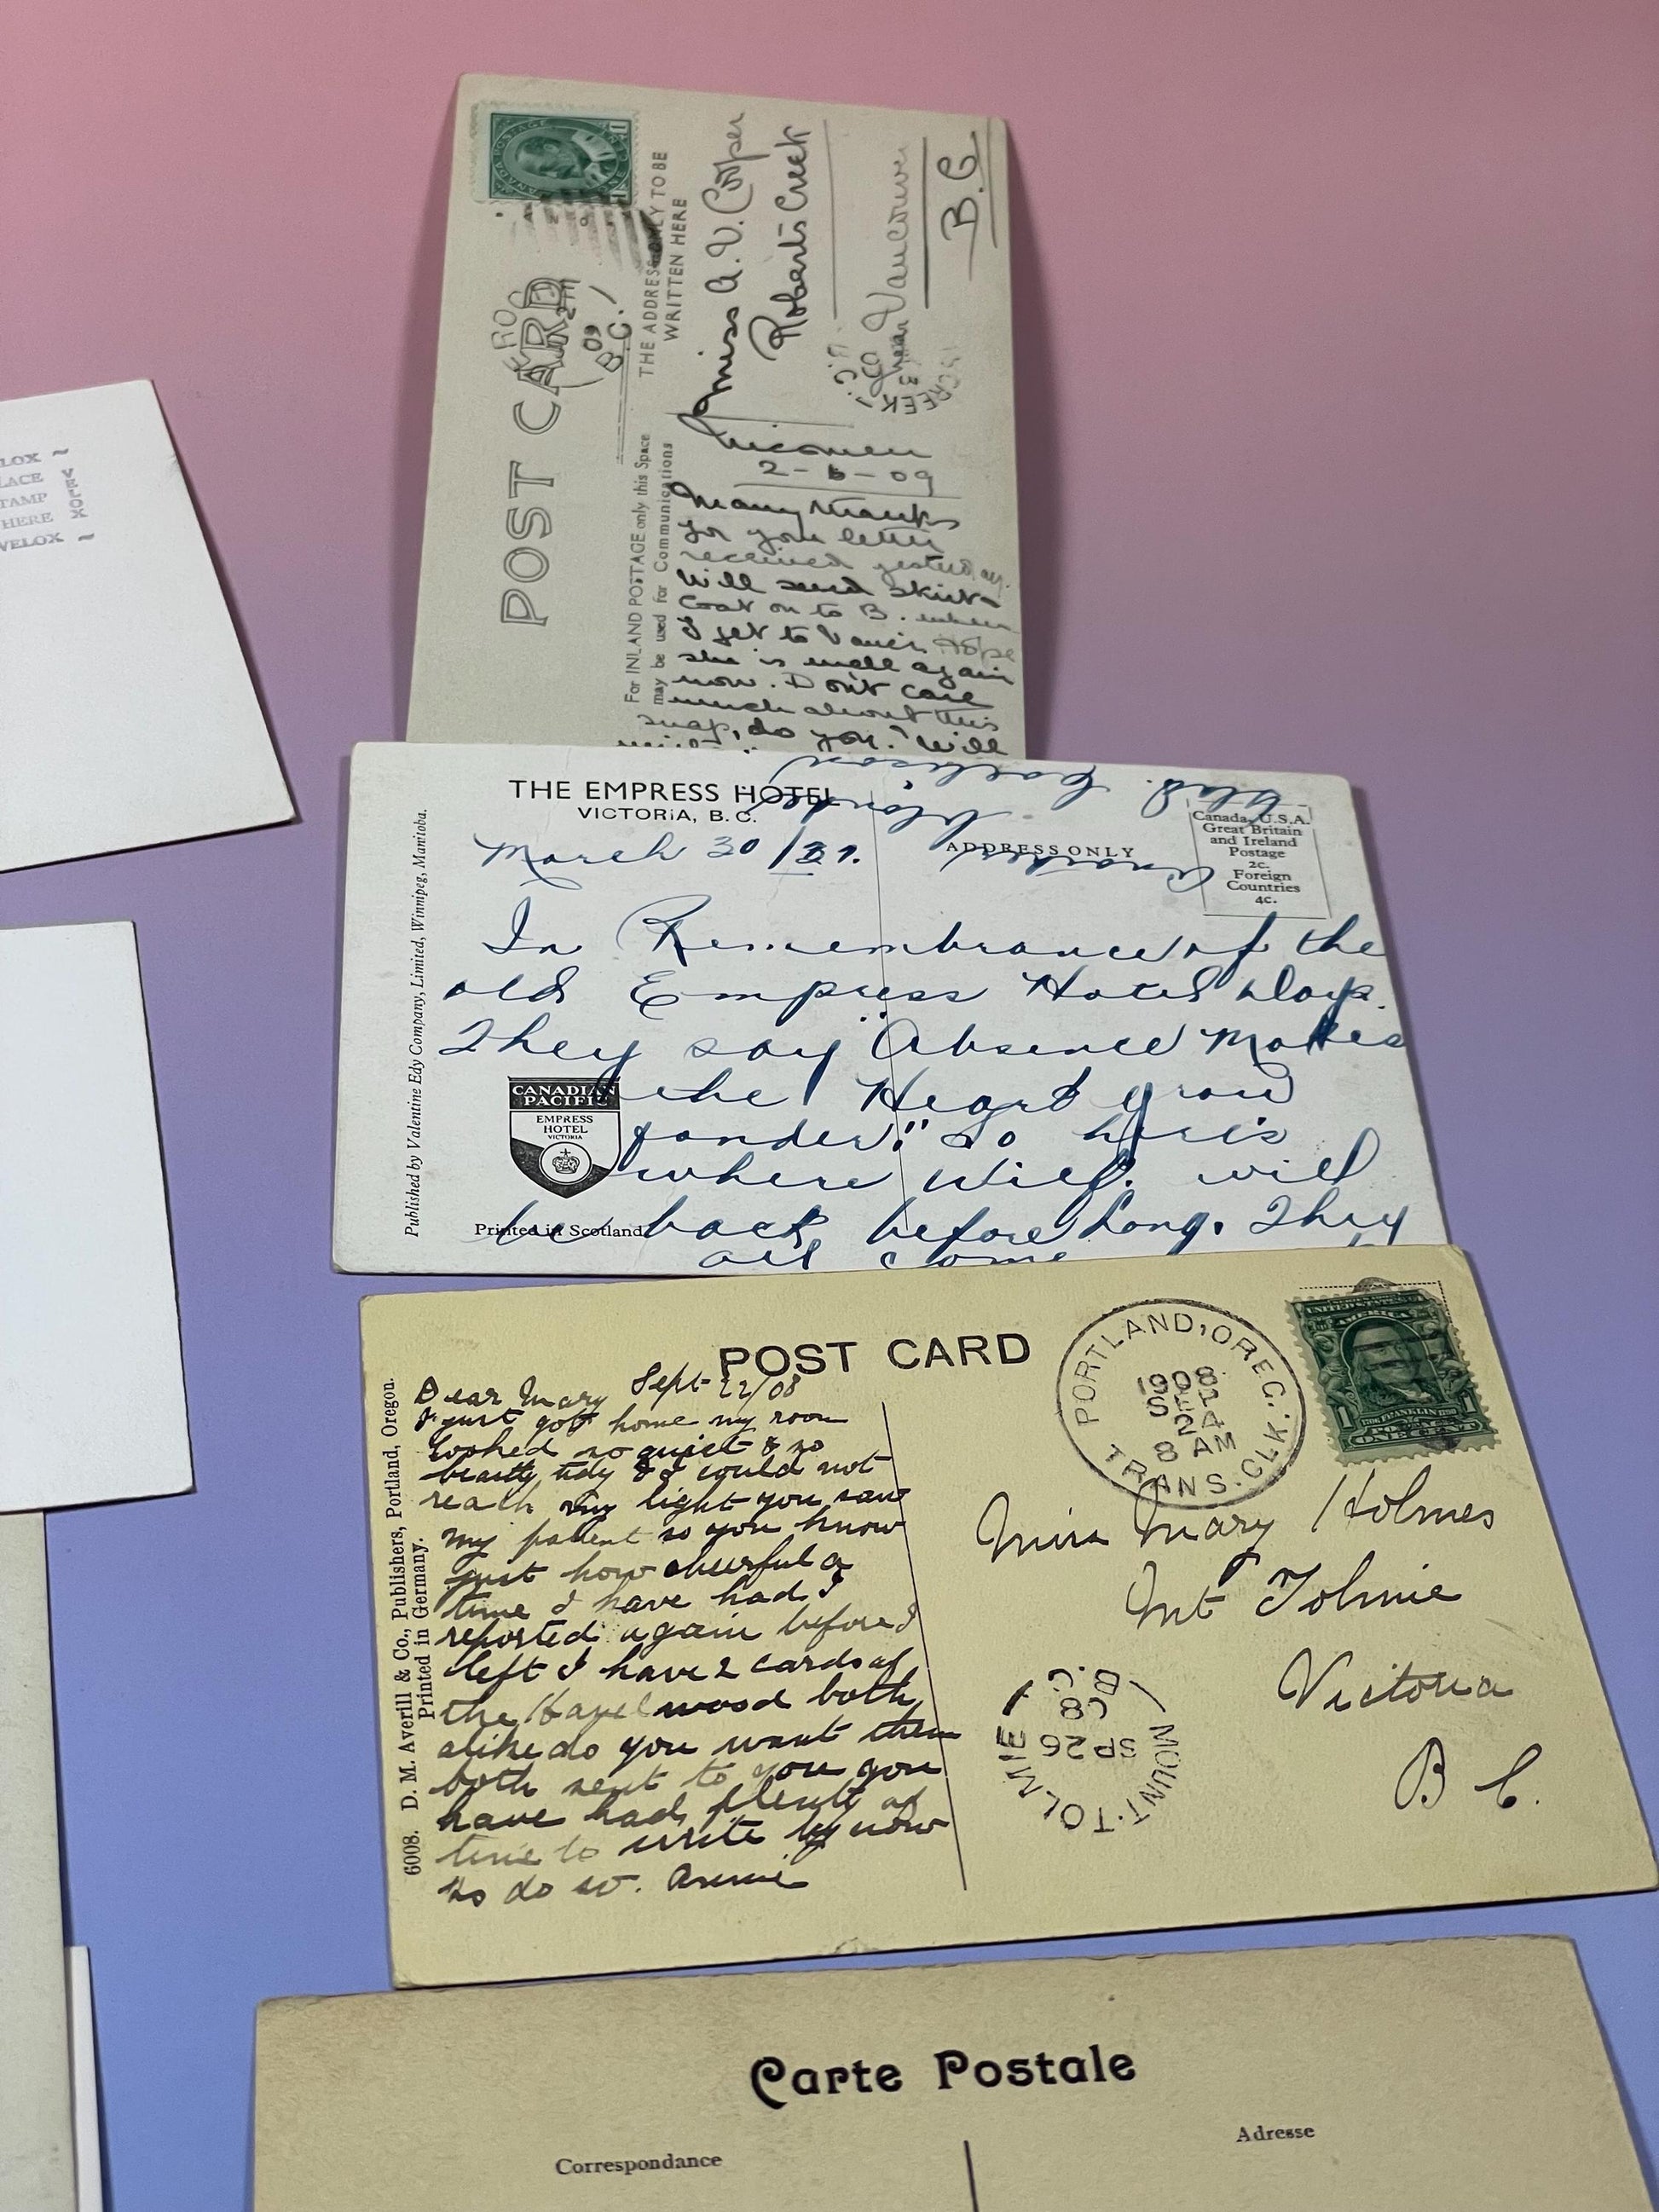 LOX ~
LACE
TAMP
HERE
VELOX ~
VELOX
POST CARD
B.C.
09
THE ADDRESS ONLY TO BE
WRITTEN HERE
Miss A. V. Cooper
Roberts Creek
near Vancouver
B.C
CREEK
B.C.
For INLAND POSTAGE only this Space
may be used for Communications
Nicomen
2-6-09
Many thanks
for your letter
received yesterday.
Will send skirt
coat on to B. when
I get to Vanc'r. Hope
she is well again
now. Don't care
much about this
snap, do you? Will
THE EMPRESS HOTEL
VICTORIA, B.C.
ADDRESS ONLY
Canada, U.S.A.
Great Britain
and Ireland
Postage
2c.
Foreign
Countries
4c.
Published by Valentine Edy Company, Limited, Winnipeg, Manitoba.
March 30
In Remembrance of the
old Empress Hotel Days.
They say "Absence Makes
the Heart grow
fonder." So here's
where Wilf. will
be back before long. They
all come
CANADIAN
PACIFIC
EMPRESS
HOTEL
VICTORIA
Printed in Scotland
POST CARD
PORTLAND, OREG.
1908
SEP
24
8 AM
TRANS. CLK.
UNITED STATES OF
AMERICA
ONE CENT
6008. D. M. Averill & Co., Publishers, Portland, Oregon.
Printed in Germany.
Sept 22/08
Dear Mary
I just got home my room
looked so quiet & so
beastly tidy & I could not
reach my light you saw
my patient so you know
just how cheerful a
time I have had I
reported again before I
left I have 2 cards of
the Hazelwood both
alike do you want them
both sent to you you
have had plenty of
time to write by now
so do so. Annie
Miss Mary Holmes
Mt Tolmie
Victoria
B C.
MOUNT-TOLMIE
SP 26
08
B.C.
Carte Postale
Correspondance
Adresse